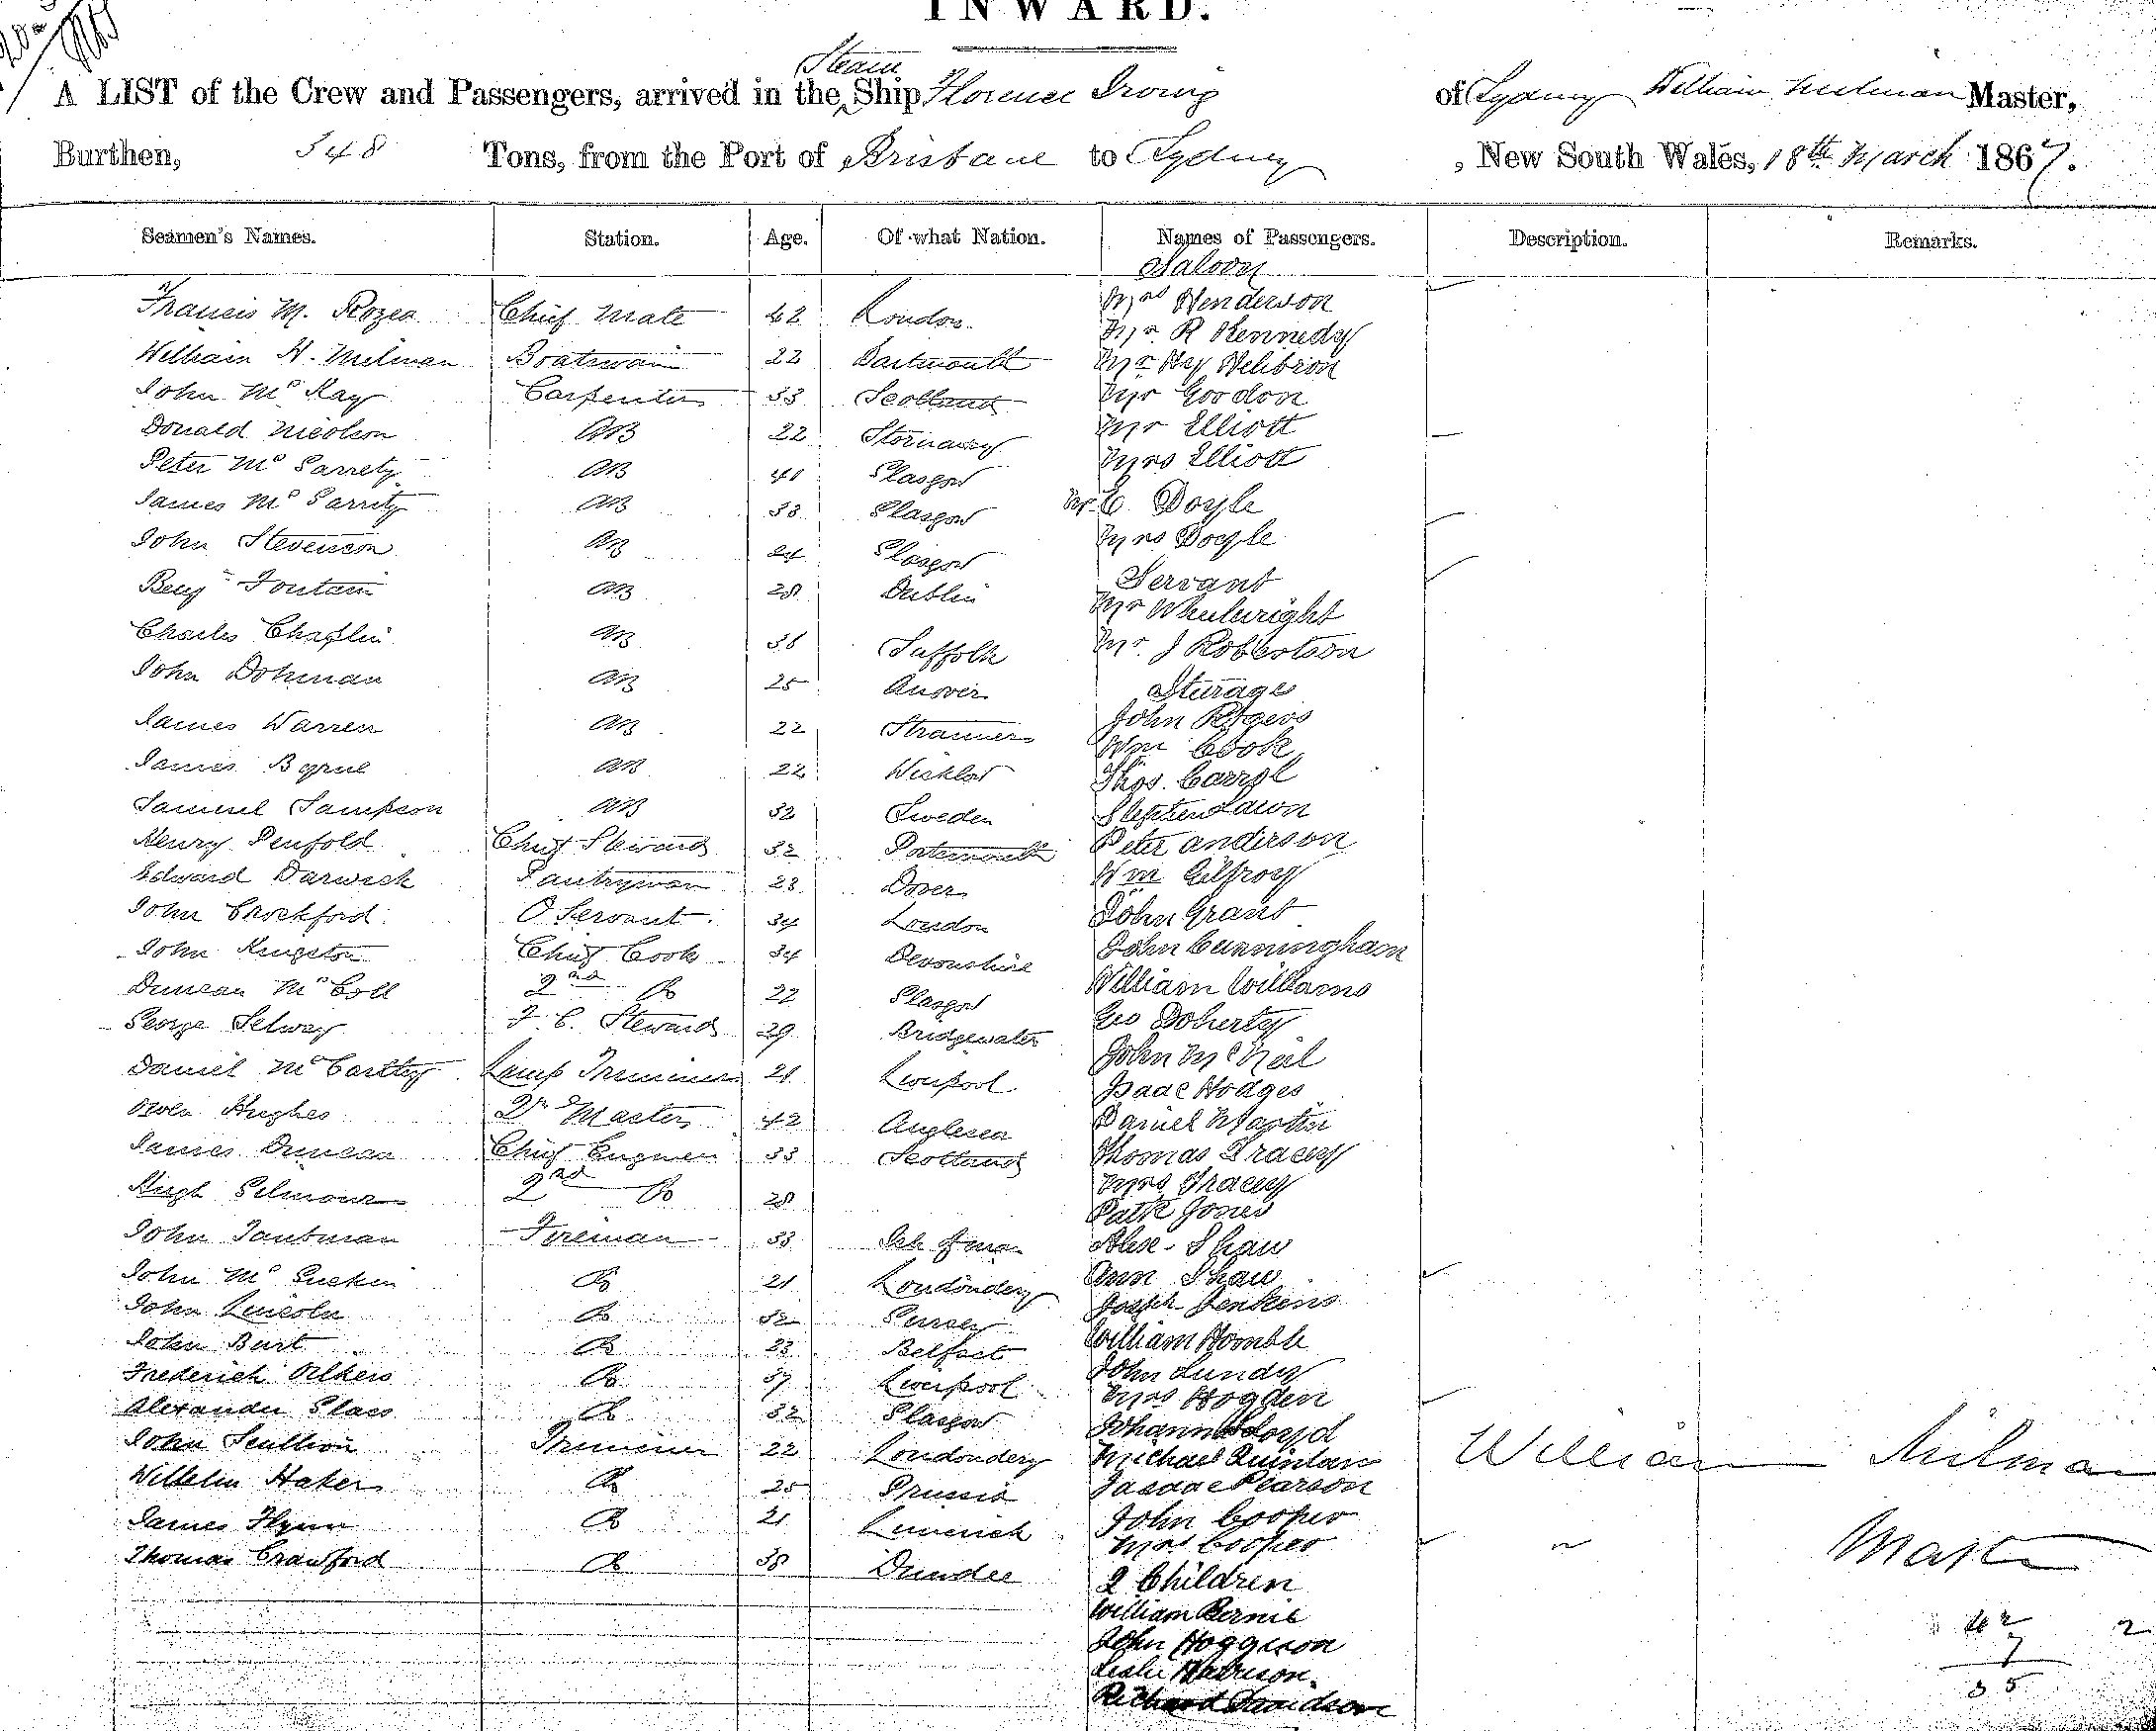 INWARD.
Steam
A LIST of the Crew and Passengers, arrived in the Ship Florence Irving of Sydney William Milman Master,
Burthen, 348 Tons, from the Port of Brisbane to Sydney, New South Wales, 18th March 1867.
Seamen's Names. Station. Age. Of what Nation. Names of Passengers. Description. Remarks.
Saloon
Francis M. Rozea Chief Mate 42 London Mrs Henderson
Mr. R Kennedy
William H. Milman Boatswain 22 Dartmouth Mr Hay
John Mc Kay Carpenter 33 Scotland Mr Goodon
Donald Nicolson AB 22 Stornaway Mr Elliott
Peter Mc Garrety AB 41 Glasgow Mrs Elliott
James Mc Garrity AB 33 Glasgow Mr. C. Doyle
John Stevenson AB 24 Glasgow Mrs Doyle
Benj Fontain AB 28 Dublin Servant
Mr Wheelwright
Charles Chaplin AB 36 Suffolk Mr. J Robertson
John Dohman AB 25 Steerage
James Warren AB 22 John Rogers
Wm Cook
James Byrne AB 22 Wicklow Thos. Carrol
Samuel Sampson AB 32 Sweden Stephen Lawn
Henry Penfold Chief Steward 32 Portsmouth Peter Anderson
Edward Darwish Pantryman 23 Dover Wm Gilfroy
John Crockford O Servant 34 London John Grant
John Kingston Chief Cook 34 Devonshire John Cunningham
Duncan Mc Coll 2nd Do 22 Glasgow William Williams
George Selway F. C. Steward 29 Bridgewater Geo Doherty
John McNeil
Daniel Mc Carthy Lamp Trimmer 21 Liverpool Isaac Hodges
Owen Hughes Master 42 Anglesea Daniel Martin
James Duncan Chief Engineer 33 Scotland Thomas Tracey
Hugh Gilmour 2nd Do 28 Mrs Tracey
Patk Jones
John Taubman Fireman 33 Isle of man Shaw
John Mc Guckin Do 21 Londonderry Ann Shaw
John Lincoln Do 32 Surrey Joseph Jenkins
John Burt Do 23 Belfast William Homble
Frederick Do 37 Liverpool John Lundy
Mrs Hogden
Alexander Glass Do 32 Glasgow Lloyd
John Scullion Trimmer 22 Londonderry Michael Quinlan William Milman
Wilhelm Haker Do 25 Prussia Isaac Pearson
James Flynn Do 21 Limerick John Cooper
Mrs Cooper Master
Thomas Crawford Do 38 Dundee 2 Children
William Bernie
42 2
John Hoggison
7
Leslie Harrison
35
Richard Davidson